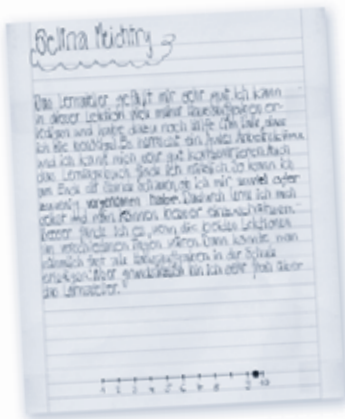 Bettina Meichtry
Das Lernatelier gefällt mir sehr gut. Ich kann
in dieser Lektion viel mehr Hausaufgaben er-
ledigen und habe dazu noch Hilfe falls
ich sie benötige. Es herrscht ein
und ich kann mich sehr gut konzentrieren. Auch
das Lerntagebuch finde ich nützlich. So kann ich
am Ende der Stunde schauen, ob ich mir zuviel oder
zuwenig vorgenommen habe. Dadurch lerne ich mich
und mein Können besser einzuschätzen.
Besser fände ich es, wenn die beiden Lektionen
an verschiedenen Tagen wären. Dann könnte man
nämlich fast alle Hausaufgaben in der Schule
erledigen. Aber grundsätzlich bin ich sehr froh über
das Lernatelier.
1 2 3 4 5 6 7 8 9 10